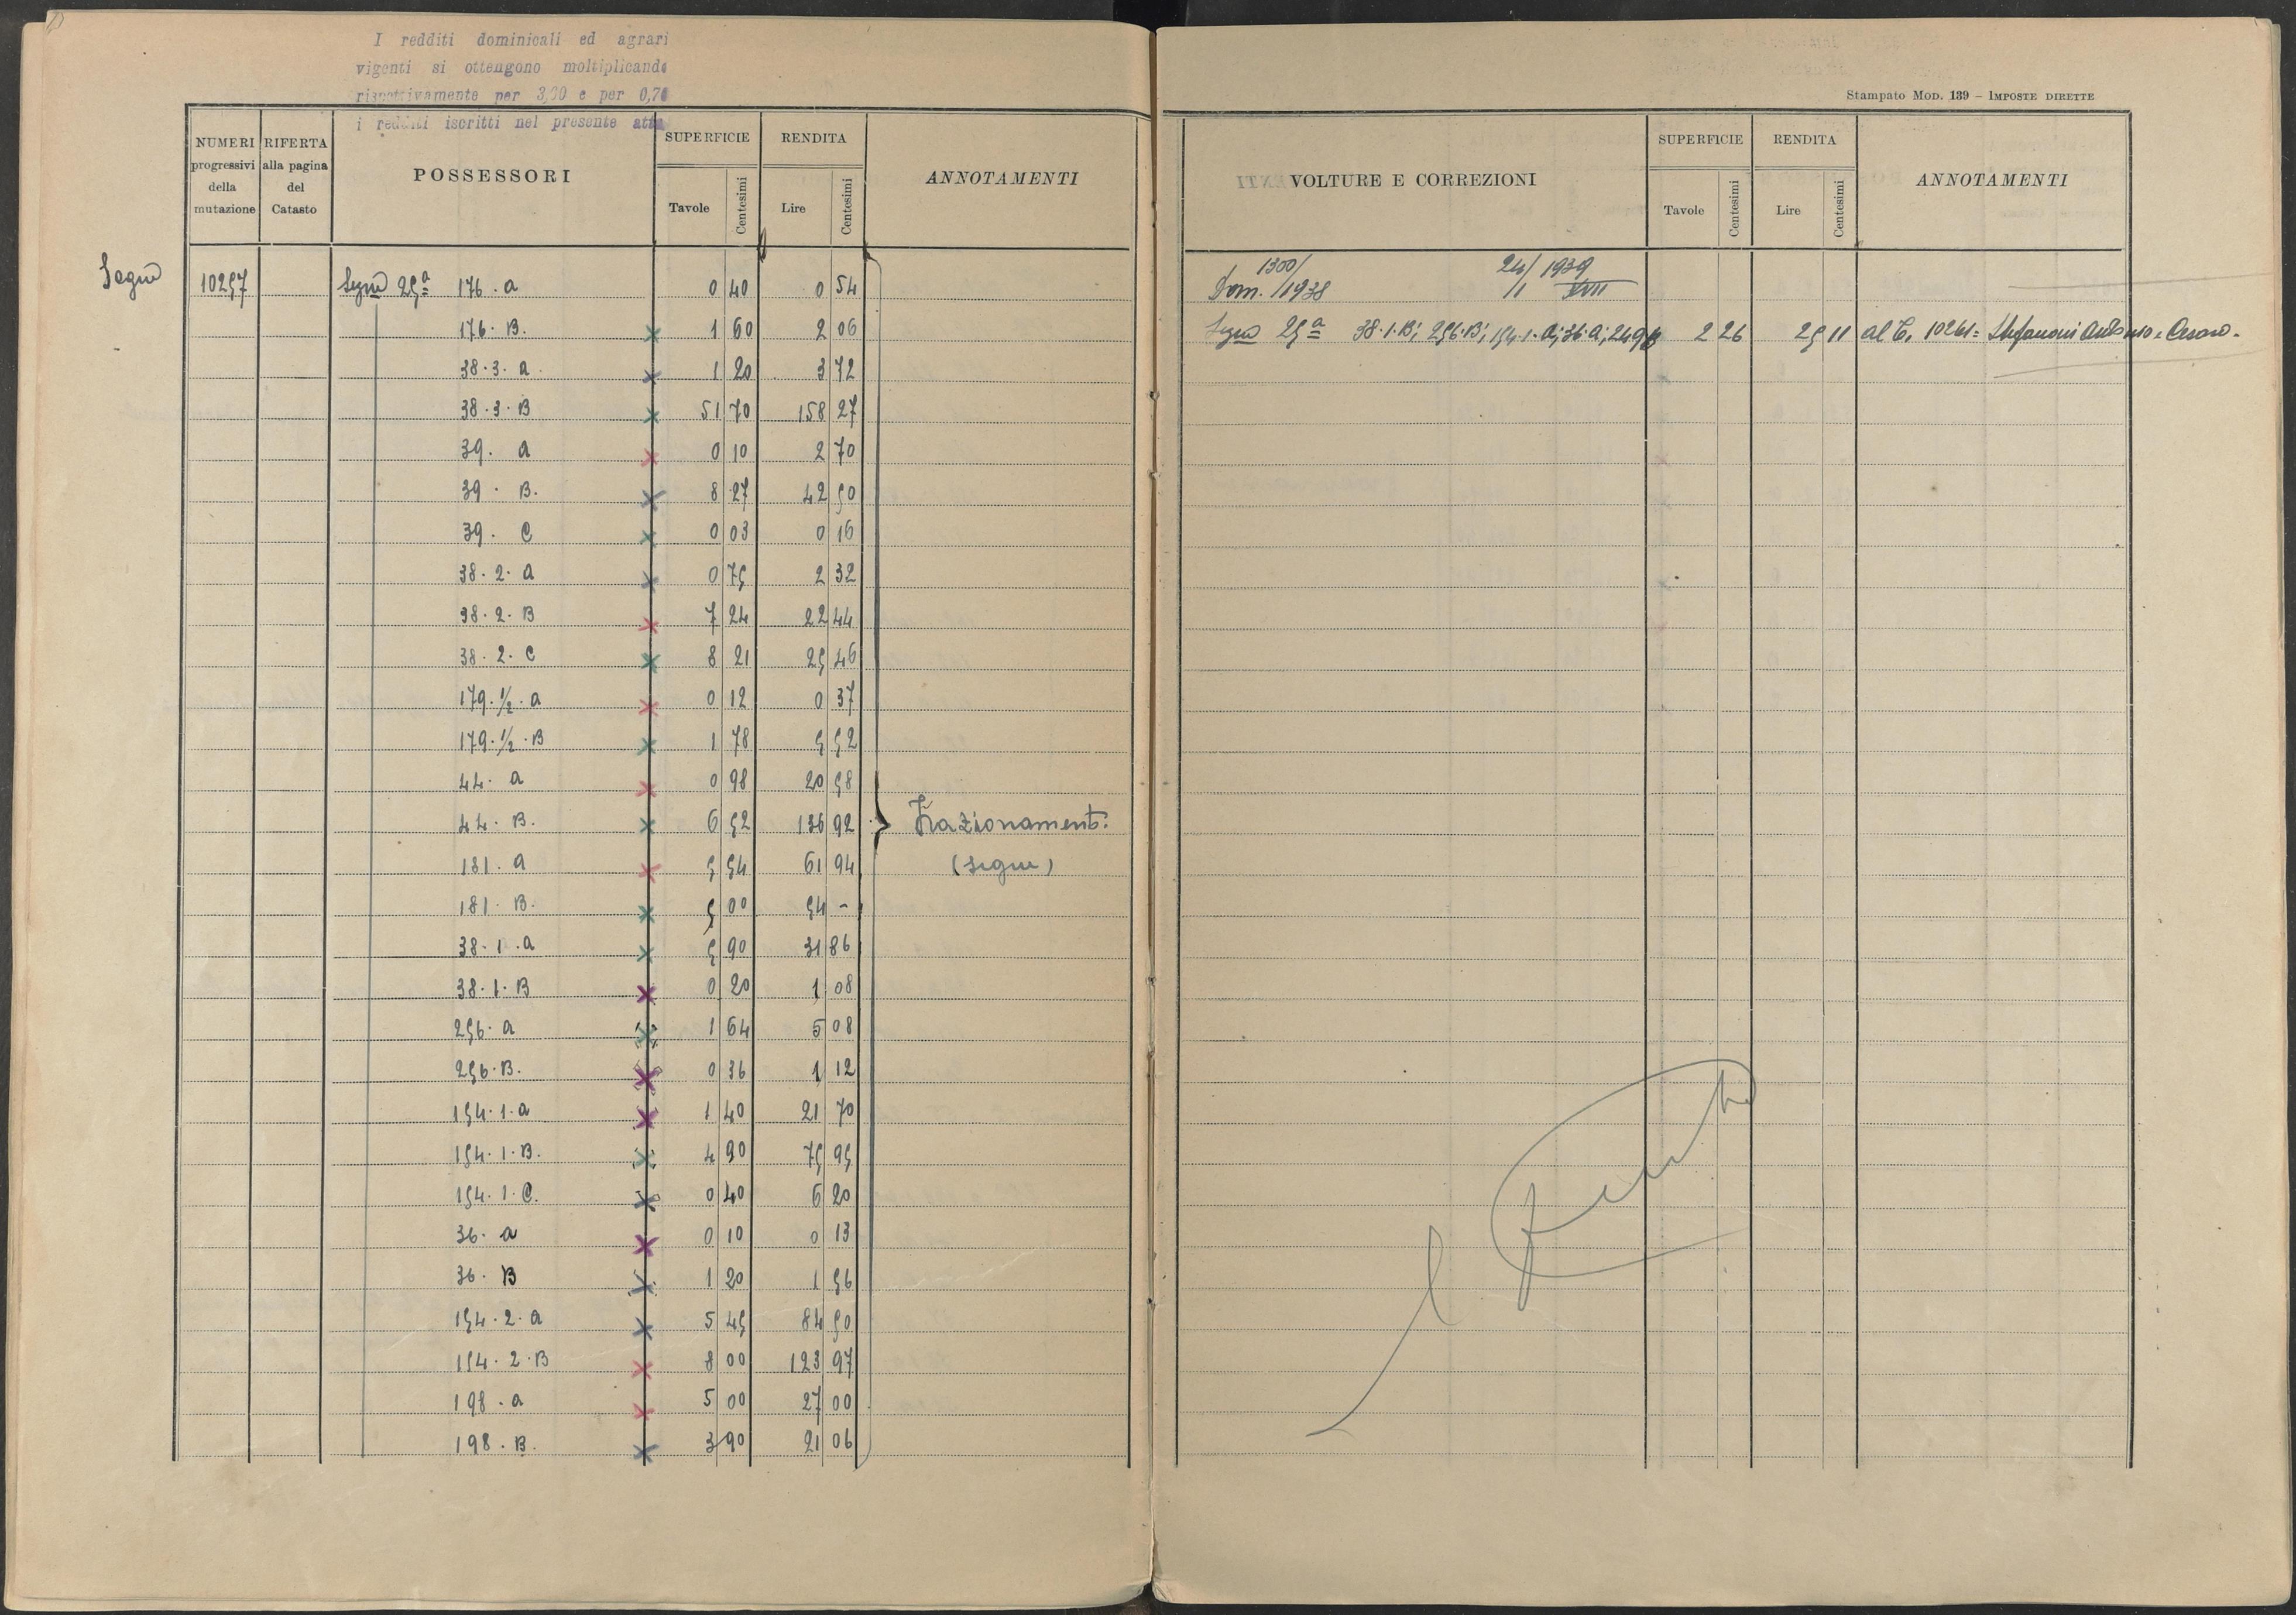 I redditi dominicali ed agrari
vigenti si ottengono moltiplicando
rispettivamente per 3,30 e per 0,70
i redditi iscritti nel presente atto
NUMERI progressivi della mutazione
RIFERTA alla pagina del Catasto
POSSESSORI
SUPERFICIE
Tavole Centesimi
RENDITA
Lire Centesimi
ANNOTAMENTI
Segue 10257 Segue 25ª 176. a 0 40 0 54
176. B. 1 60 2 06
38.3. a 1 20 3 72
38.3. B 51 70 158 27
39. a 0 10 2 70
39. B. 8 27 42 50
39. C 0 03 0 16
38.2. a 0 75 2 32
38.2. B 7 24 22 44
38.2. C 8 21 25 46
179.½. a 0 12 0 37
179.½. B 1 78 5 52
44. a 0 98 20 58
44. B. 6 52 136 92 Frazionamenti
181. a 5 54 61 94 (segue)
181. B. 5 00 54 -
38.1. a 5 90 31 86
38.1. B 0 20 1 08
256. a 1 64 5 08
256. B. 0 36 1 12
154.1. a 1 40 21 70
154.1. B. 4 90 75 95
154.1. C. 0 40 6 20
36. a 0 10 0 13
36. B 1 20 1 56
154.2. a 5 45 84 50
154.2. B 8 00 123 97
198. a 5 00 27 00
198. B. 3 90 21 06
Stampato MOD. 139 – IMPOSTE DIRETTE
VOLTURE E CORREZIONI
SUPERFICIE
Tavole Centesimi
RENDITA
Lire Centesimi
ANNOTAMENTI
1300/ 24/ 1939
Dom. /1938 /1 XVII
Segue 25ª 38.1.B; 256.B; 154.1.a; 36.a; 249 2 26 25 11 al C. 10261 = Stefanoni Antonio e Cesare.